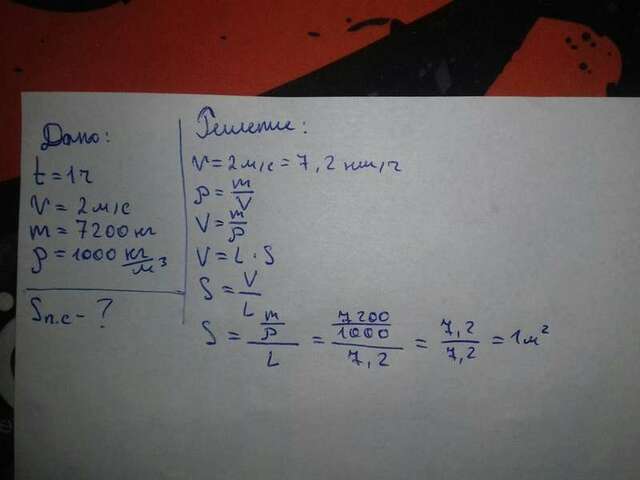 Дано:
t = 1ч
V = 2 м/с
m = 7200 кг
ρ = 1000 кг/м³
Sп.с - ?
Решение:
V = 2 м/с = 7,2 км/ч
ρ = m/V
V = m/ρ
V = L · S
S = V/L
S = (m/ρ)/L = (7200/1000)/7,2 = 7,2/7,2 = 1м²